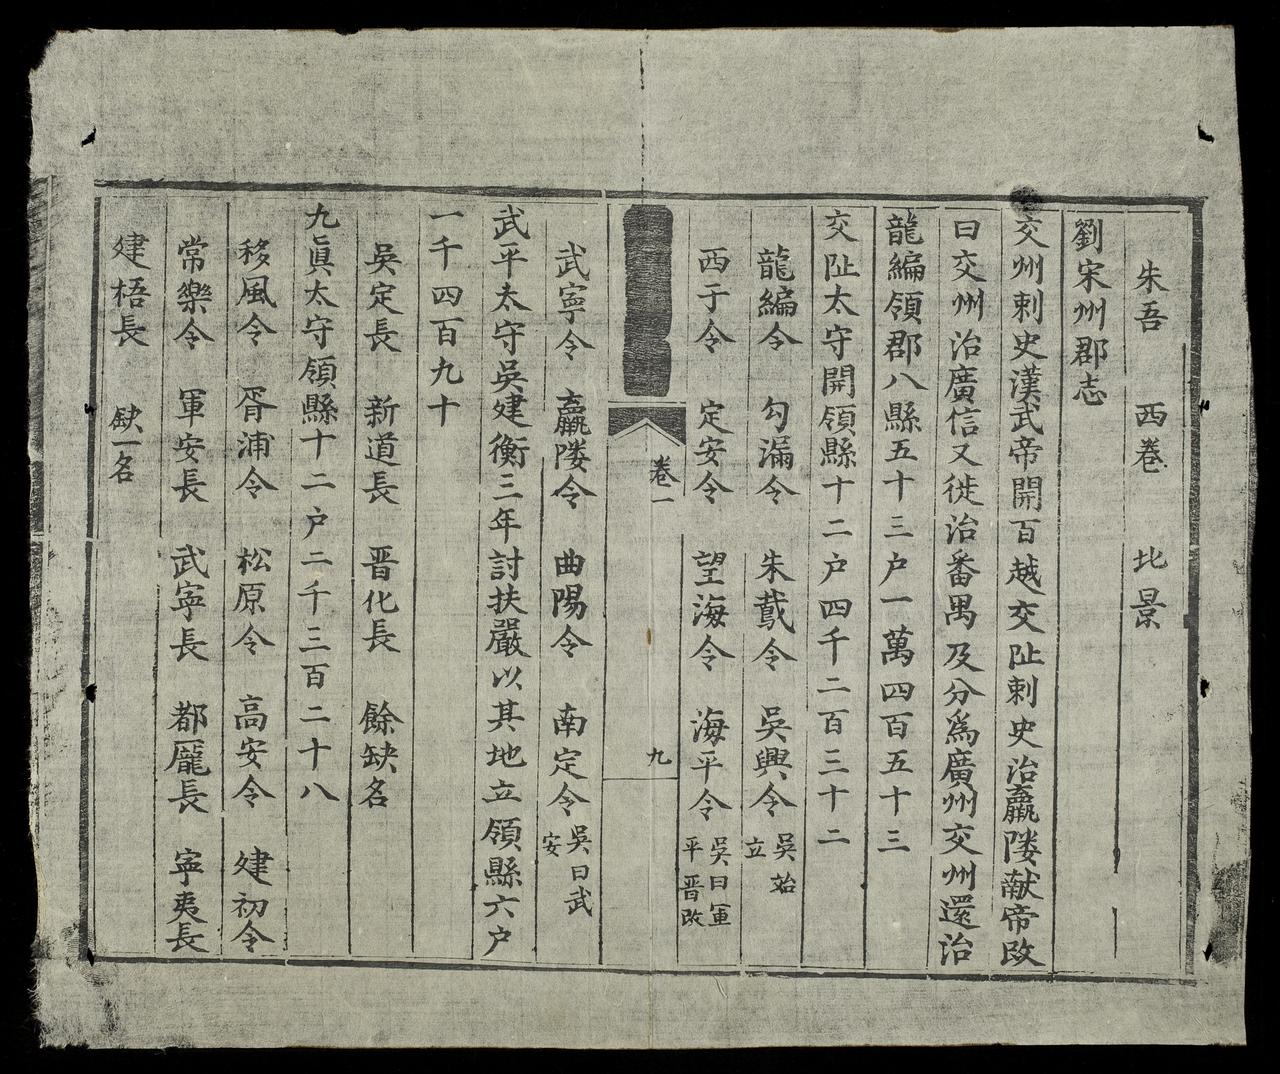 朱吾 西卷 比景
劉宋州郡志
交州刺史漢武帝開百越交阯刺史治羸𨻻献帝改
曰交州治廣信又徙治番禺及分爲廣州交州還治
龍編領郡八縣五十三户一萬四百五十三
交阯太守開領縣十二户四千二百三十二
龍編令 勾漏令 朱䳒令 吳興令 吳始立
西于令 定安令 望海令 海平令 吳曰軍平晋改
卷一 九
武寧令 羸𨻻令 曲陽令 南定令 吳曰武安
武平太守吳建衡三年討扶嚴以其地立領縣六户
一千四百九十
吳定長 新道長 晋化長 餘缺名
九眞太守領縣十二户二千三百二十八
移風令 胥浦令 松原令 高安令 建初令
常樂令 軍安長 武寧長 都龐長 寧夷長
建梧長 缺一名